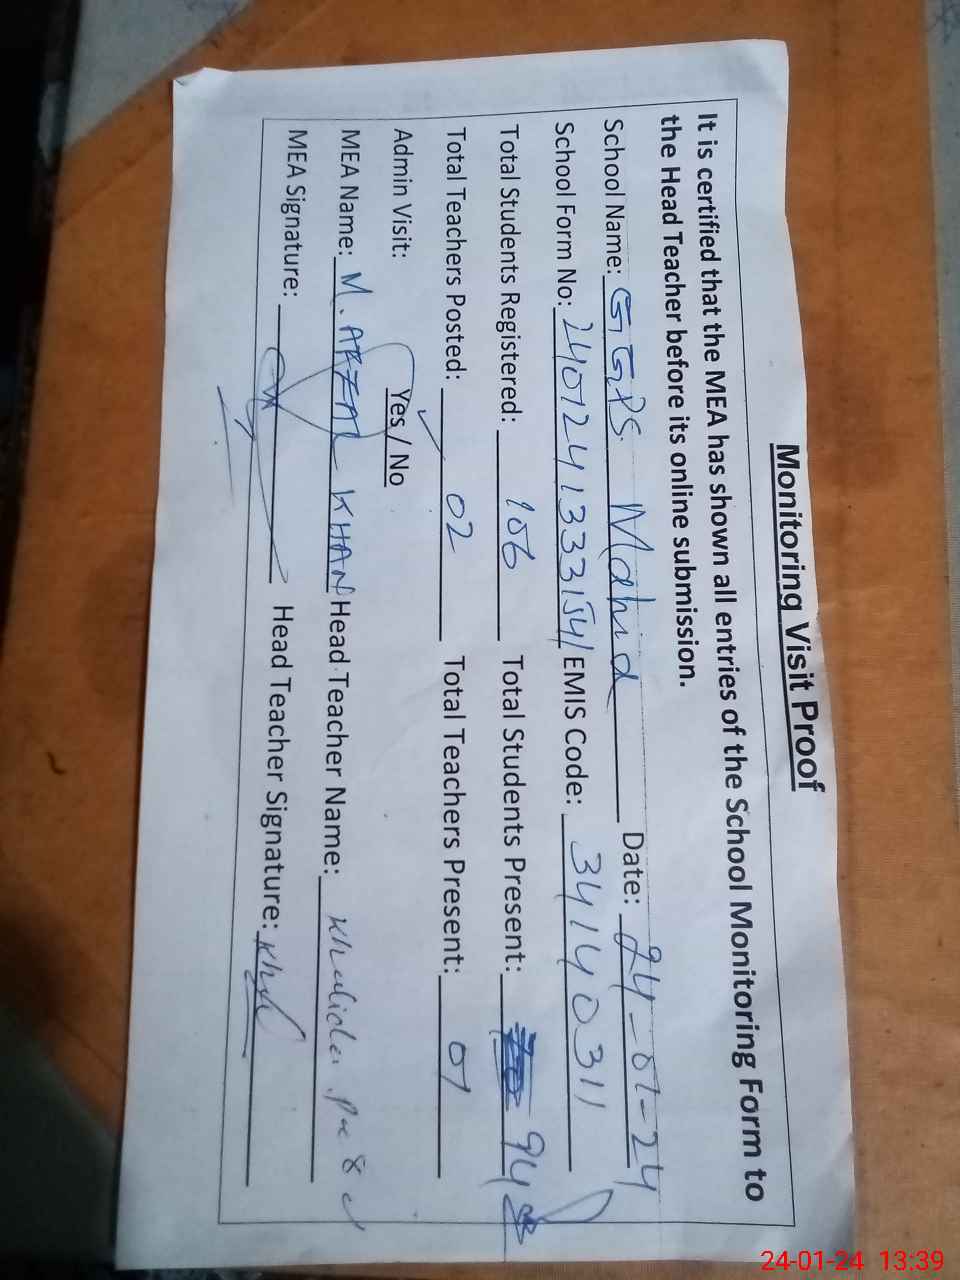 Monitoring Visit Proof
It is certified that the MEA has shown all entries of the School Monitoring Form to
the Head Teacher before its online submission.
School Name: GGPS Mahid Date: 24-01-24
School Form No: 24012413331541 EMIS Code: 34140311
Total Students Registered: 106 Total Students Present: 94
Total Teachers Posted: 02 Total Teachers Present: 01
Admin Visit: Yes / No
MEA Name: M. AFZAL KHAN Head Teacher Name: Khalida
MEA Signature: Head Teacher Signature:
24-01-24 13:39